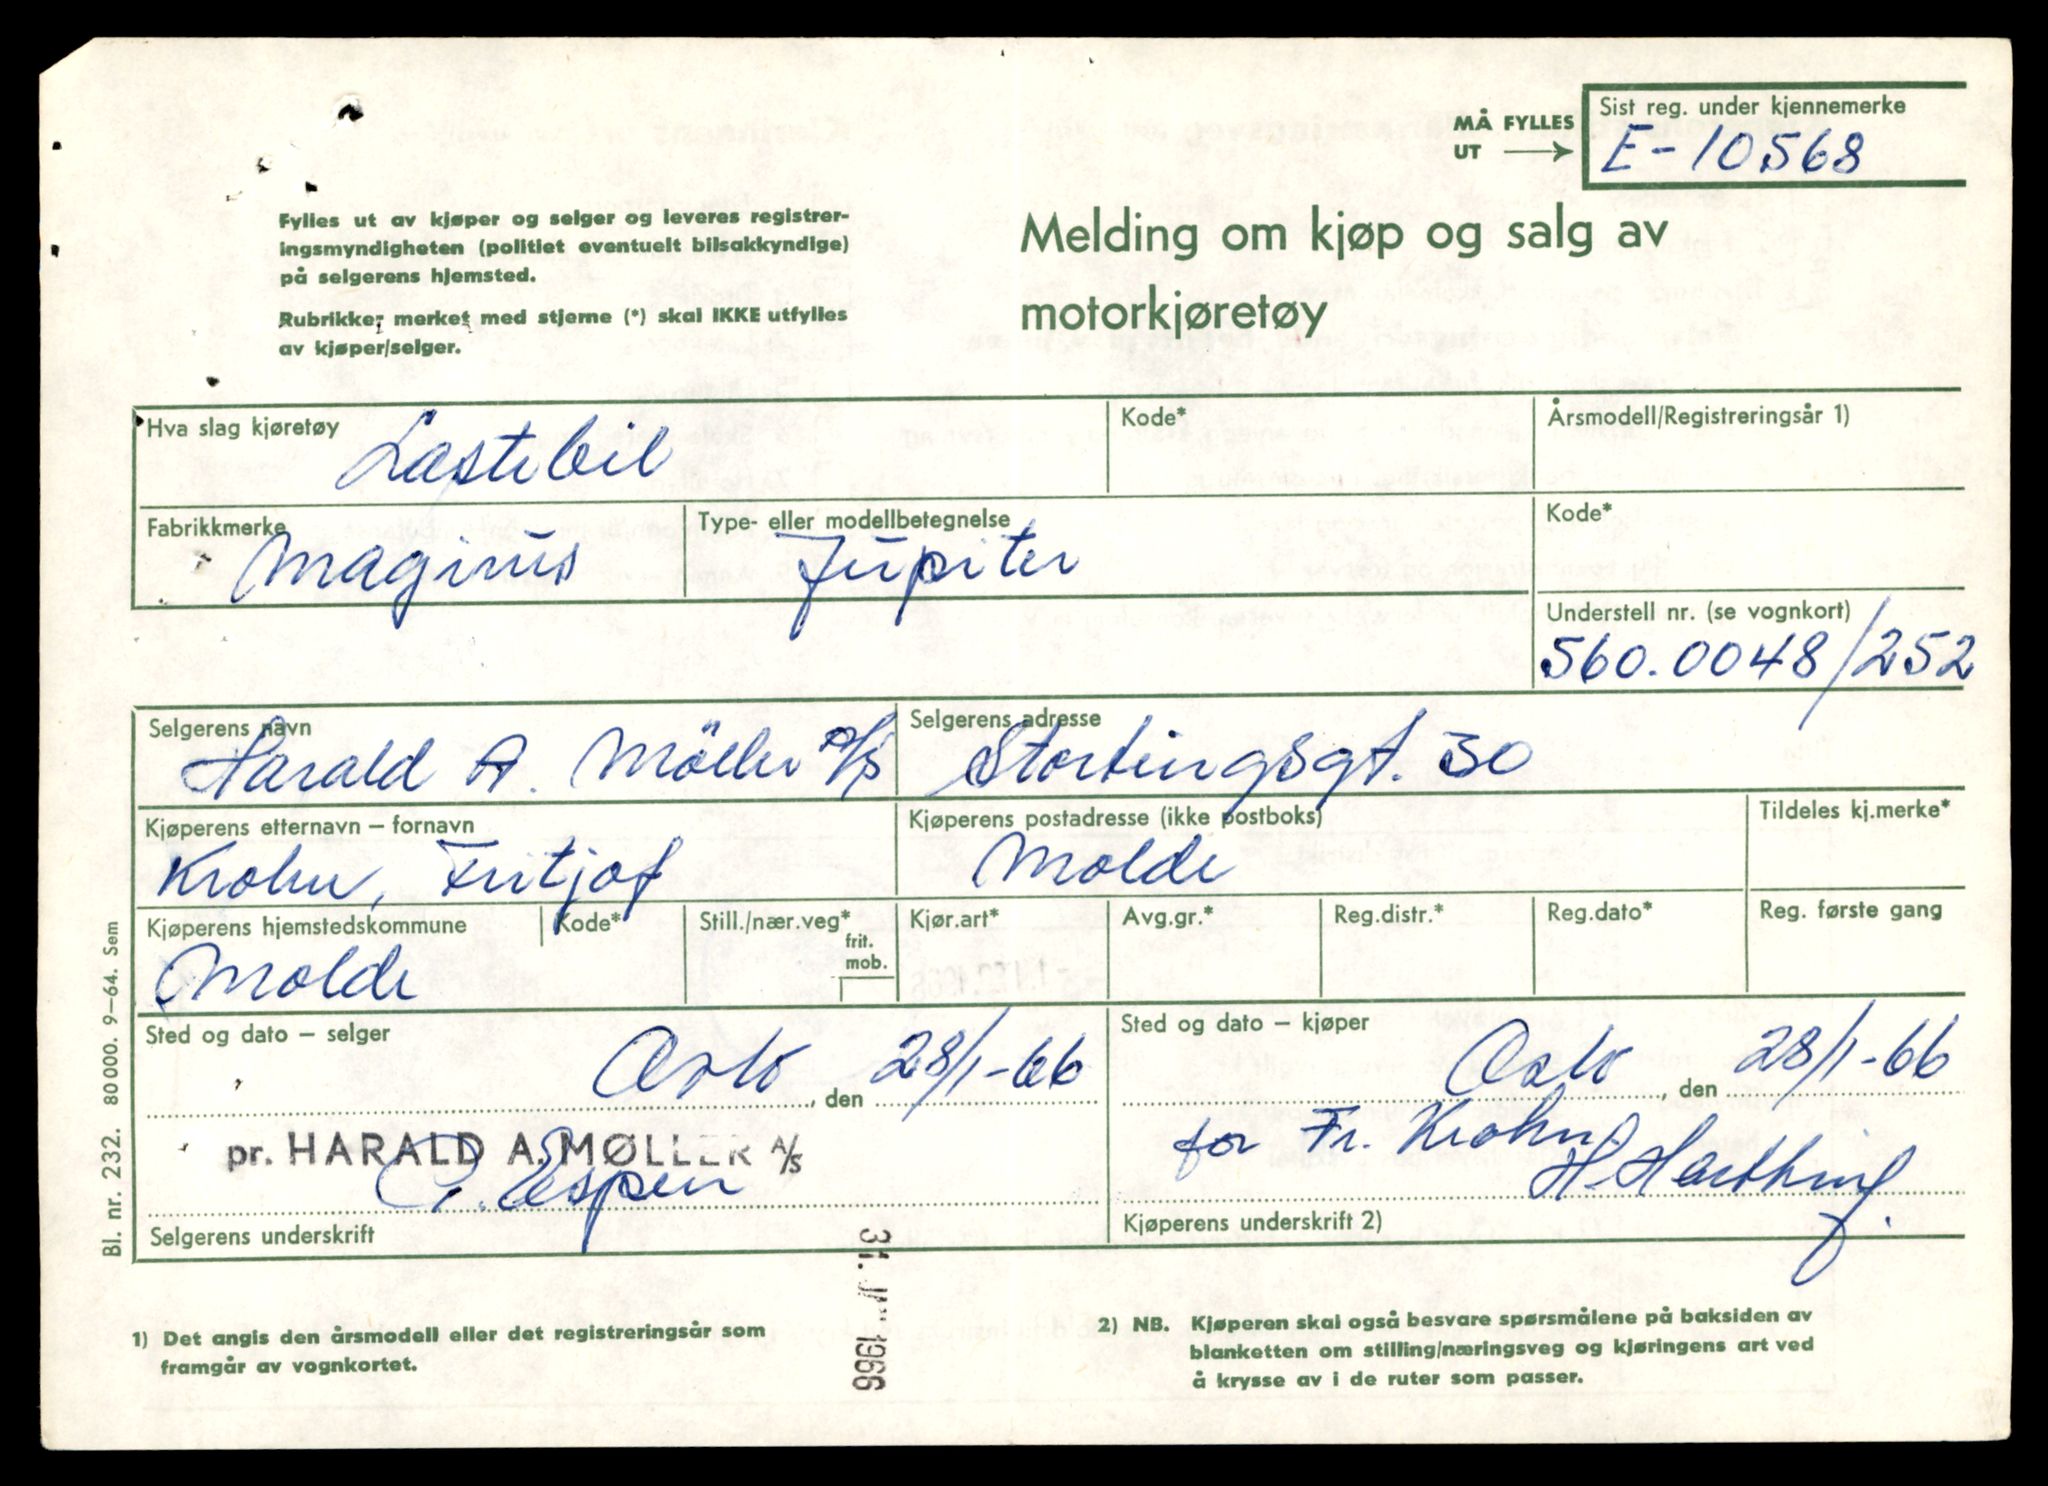 MÅ FYLLES
UT
Sist reg. under kjennemerke
E-10568
Fylles ut av kjøper og selger og leveres registrer-
ingsmyndigheten (politiet eventuelt bilsakkyndige)
på selgerens hjemsted.
Rubrikker merket med stjerne (*) skal IKKE utfylles
av kjøper/selger.
Melding om kjøp og salg av
motorkjøretøy
Hva slag kjøretøy
Lastebil
Kode*
Årsmodell/Registreringsår 1)
Fabrikkmerke
Magirus
Type- eller modellbetegnelse
Jupiter
Kode*
Understell nr. (se vognkort)
560.0048/252
Selgerens navn
Harald A. Möller A/S
Selgerens adresse
Stortingsgt. 30
Kjøperens etternavn – fornavn
Krohn, Fritjof
Kjøperens postadresse (ikke postboks)
Molde
Tildeles kj.merke*
Kjøperens hjemstedskommune
Molde
Kode*
Still./nær.veg*
frit.
mob.
Kjør.art*
Avg.gr.*
Reg.distr.*
Reg.dato*
Reg. første gang
Sted og dato – selger
Oslo, den 28/1-66
Sted og dato – kjøper
Oslo, den 28/1-66
pr. HARALD A. MØLLER A/S
Espen
for Fr. Krohn
H.
Selgerens underskrift
Kjøperens underskrift 2)
31. 1966
1) Det angis den årsmodell eller det registreringsår som
framgår av vognkortet.
2) NB. Kjøperen skal også besvare spørsmålene på baksiden av
blanketten om stilling/næringsveg og kjøringens art ved
å krysse av i de ruter som passer.
Bl. nr. 232. 80000. 9–64. Sem